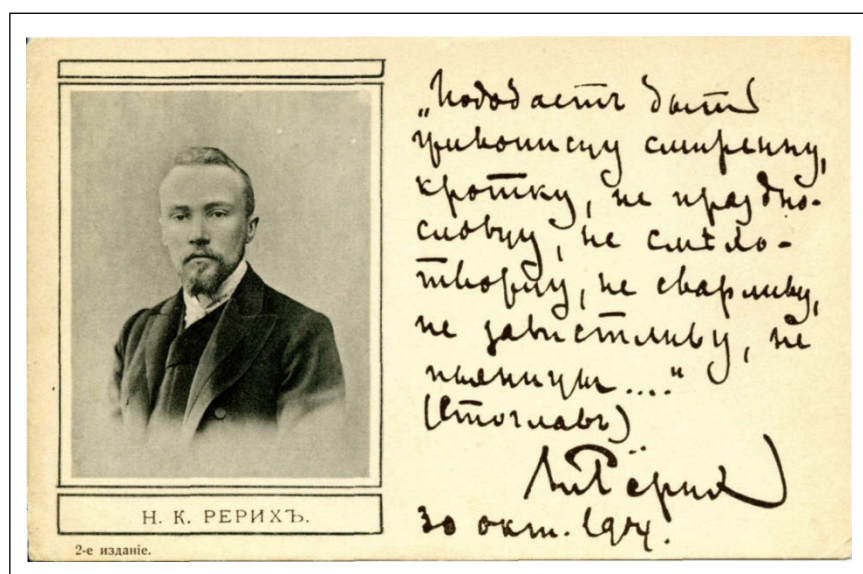 „Подобаетъ быти
живописцу смиренну,
кротку, не праздно-
словцу, не смѣхо-
творцу, не сварливу,
не завистливу, не
пьяницы...."
(Стоглавъ)
НРёрих
30 окт. 1904.
Н. К. РЕРИХЪ.
2-е изданіе.